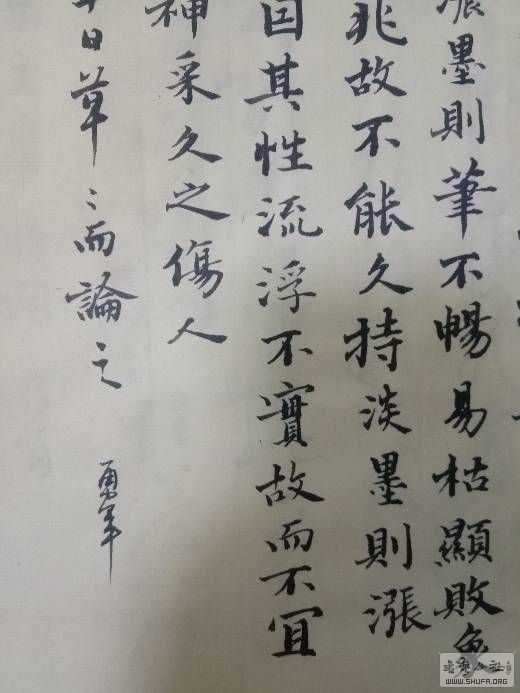 墨則筆不暢易枯顯敗
兆故不能久持淡墨則漲
因其性流浮不實故而不宜
神采久之傷人
日草〻而論之
勇年
書法公社
WWW.SHUFA.ORG